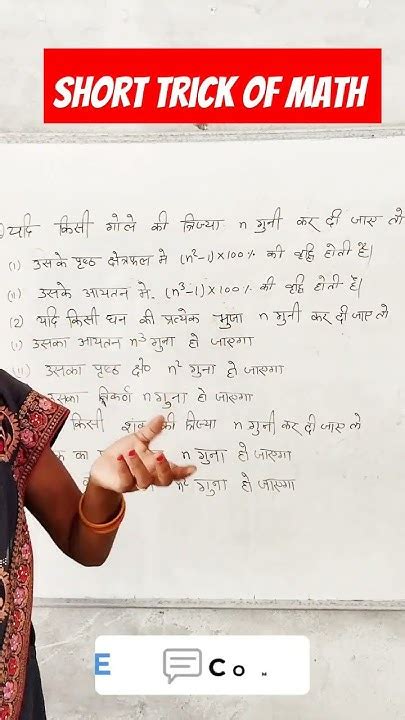 SHORT TRICK OF MATH
यदि किसी गोले की त्रिज्या n गुनी कर दी जाए तो
(i) उसके पृष्ठ क्षेत्रफल में (n²-1)×100% की वृद्धि होती है।
(ii) उसके आयतन में (n³-1)×100% की वृद्धि होती है।
(2) यदि किसी घन की प्रत्येक भुजा n गुनी कर दी जाए तो
(i) उसका आयतन n³ गुना हो जाएगा
(ii) उसका पृष्ठ क्षे० n² गुना हो जाएगा
उसका विकर्ण n गुना हो जाएगा
किसी शंकु की त्रिज्या n गुनी कर दी जाए तो
का n गुना हो जाएगा
n² गुना हो जाएगा
E CO